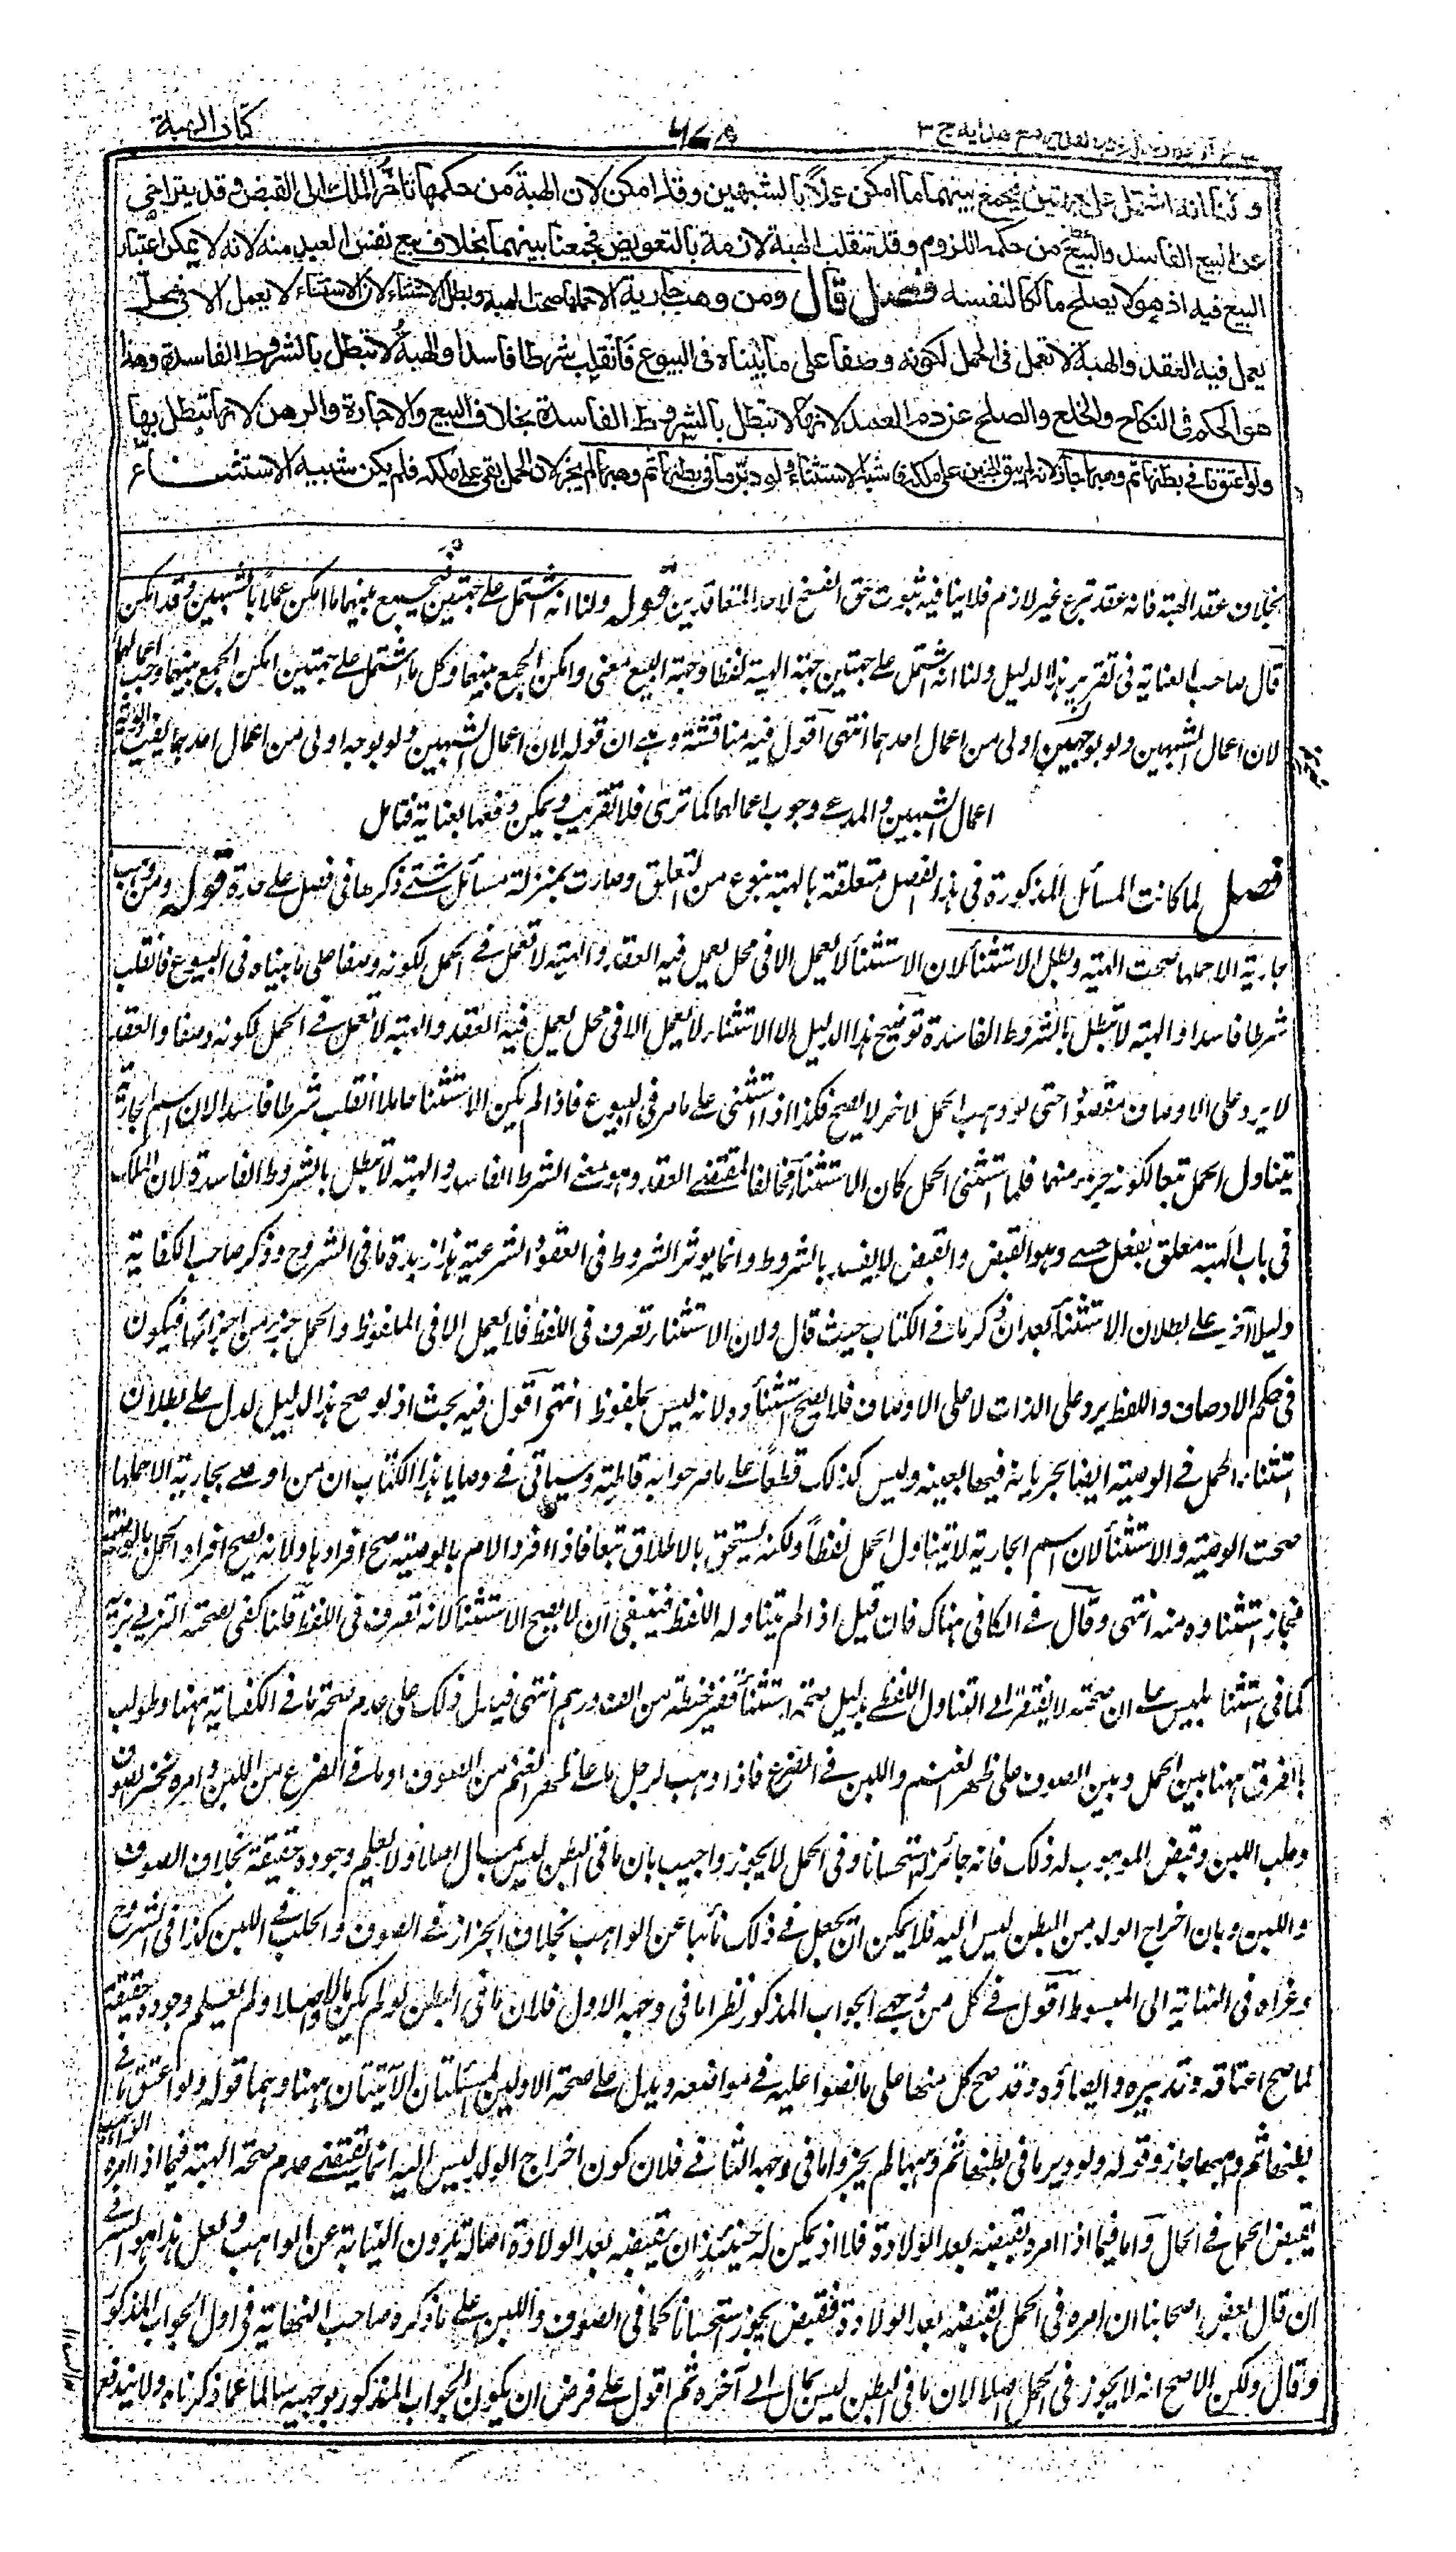 كتاب الهبة
ولنا انه اشتمل على جهتين فيجمع بينهما ما امكن عملاً بالشبهين وقد امكن لان الهبة من حكمها تاخر الملك الى القبض وقد يتراخى
عن البيع الفاسد والبيع من حكمه اللزوم وقد تنقلب الهبة لازمة بالتعويض فجمعنا بينهما بخلاف بيع نفس العبد منه لانه لا يمكن اعتبار
البيع فيه اذ هو لا يصلح مالكا لنفسه فصل قال ومن وهب جارية الا حملها صحت الهبة وبطل الاستثناء لان الاستثناء لا يعمل الا في محل
يعمل فيه العقد والهبة لا تعمل فى الحمل لكونه وصفا على ما بيناه فى البيوع فانقلب شرطا فاسدا والهبة لا تبطل بالشروط الفاسدة وهذا
هو الحكم فى النكاح والخلع والصلح عن دم العمد لانها لا تبطل بالشروط الفاسدة بخلاف البيع والاجارة والرهن لانها تبطل بها
ولو اعتق ما في بطنها ثم وهبها جاز لانه لم يبق الجنين على ملكه فاشبه الاستثناء ولو دبر ما في بطنها ثم وهبها لم يجز لان الحمل بقى على ملكه فلم يكن شبيه الاستثناء
بخلاف عقد الهبة فانه عقد تبرع غير لازم فلا ينافيه ثبوت حق الفسخ لاحد المتعاقدين قوله ولنا انه اشتمل على جهتين فيجمع بينهما ما امكن عملاً بالشبهين وقد امكن
قال صاحب العناية فى تقرير هذا الدليل ولنا انه اشتمل على جهتين جهة الهبة لفظا وجهة البيع معنى وامكن الجمع بينهما وكل ما اشتمل على جهتين امكن الجمع بينهما وجب اعمالهما
لان اعمال الشبهين ولو بوجهين اولى من اعمال احدهما انتهى اقول فيه مناقشة وهى ان قوله لان اعمال الشبهين ولو بوجه اولى من اعمال احدهما يفيد اولوية
اعمال الشبهين والمدعى وجوب اعمالهما كما ترى فلا تقريب ويمكن دفعها بعناية فتامل
فصل لما كانت المسائل المذكورة فى هذا الفصل متعلقة بالهبة بنوع من التعلق وصارت بمنزلة مسائل شتى ذكرها في فصل على حدة قوله ومن وهب
جارية الا حملها صحت الهبة وبطل الاستثناء لان الاستثناء لا يعمل الا فى محل يعمل فيه العقد والهبة لا تعمل في الحمل لكونه وصفا على ما بيناه فى البيوع فانقلب
شرطا فاسدا والهبة لا تبطل بالشروط الفاسدة توضيح هذا الدليل ان الاستثناء لا يعمل الا فى محل يعمل فيه العقد والهبة لا تعمل فى الحمل لكونه وصفا والعقد
لا يرد على الاوصاف مقصودا حتى لو وهب الحمل لاخر لا يصح فكذا اذا استثنى على ما مر فى البيوع فاذا لم يكن الاستثناء عاملا انقلب شرطا فاسدا لان اسم الجارية
يتناول الحمل تبعا لكونه جزء منها فلما استثنى الحمل كان الاستثناء مخالفا لمقتضى العقد وهو معنى الشرط الفاسد والهبة لا تبطل بالشروط الفاسدة لان الملك
فى باب الهبة معلق بفعل حسى وهو القبض والقبض لا يفسد بالشروط وانما يوثر الشروط فى العقود الشرعية هذا زبدة ما فى الشروح وذكر صاحب الكفاية
دليلا آخر على بطلان الاستثناء بعد ان ذكر ما فى الكتاب حيث قال ولان الاستثناء تصرف فى اللفظ فلا يعمل الا فى الملفوظ والحمل جزء من اجزائها فيكون
فى حكم الاوصاف واللفظ يرد على الذات لا على الاوصاف فلا يصح استثناؤه لانه ليس بملفوظ انتهى اقول فيه بحث اذ لو صح هذا الدليل لدل على بطلان
استثناء الحمل فى الوصية ايضا لجريانه فيها بعينه وليس كذلك قطعاً على ما صرحوا به قاطبة وسياتى فى وصايا هذا الكتاب ان من اوصى بجارية الا حملها
صحت الوصية والاستثناء لان اسم الجارية لا يتناول الحمل لفظاً ولكنه يستحق بالاطلاق تبعا فاذا افرد الام بالوصية صح افرادها ولانه يصح افراد الحمل بالوصية
فجاز استثناؤه منه انتهى وقال فى الكافى هناك فان قيل اذا لم يتناوله اللفظ فينبغى ان لا يصح الاستثناء لانه تصرف فى اللفظ قلنا كفى لصحته
كما فى استثناء ابليس على ان صحته لا يفتقر الى التناول اللفظى بدليل صحة استثناء قفيز حنطة من الف درهم انتهى فيدل ذلك على عدم صحة ما فى الكفاية ههنا وطولب
بالفرق ههنا بين الحمل وبين الصوف على ظهر الغنم واللبن فى الضرع فاذا وهب لرجل ما على ظهر الغنم من الصوف او ما فى الضرع من اللبن وامره بجز الصوف
وحلب اللبن وقبض الموهوب له ذلك فانه جائز استحسانا وفى الحمل لا يجوز واجيب بان ما فى البطن ليس بمال اصلا ولا يعلم وجوده حقيقة بخلاف الصوف
واللبن وبان اخراج الولد من البطن ليس اليه فلا يمكن ان يجعل فى ذلك نائبا عن الواهب بخلاف الجزاز فى الصوف والحلب فى اللبن كذا فى الشروح
وعزاه فى النهاية الى المبسوط اقول فى كل من وجهى الجواب المذكور نظر اما فى وجهه الاول فلان ما فى البطن لو لم يكن مالا اصلا ولم يعلم وجوده حقيقة
لما صح اعتاقه وتدبيره وايصاؤه وقد صح كل منها على ما نصوا عليه فى مواضعه ويدل على صحة الاولين المسئلتان الآتيتان ههنا وهما قوله ولو اعتق ما فى
بطنها ثم وهبها جاز وقوله ولو دبر ما فى بطنها ثم وهبها لم يجز واما فى وجهه الثانى فلان كون اخراج الولد ليس اليه انما يقتضى عدم صحة الهبة فيما اذا امره الواهب
بقبض الحمل فى الحال واما فيما اذا امره بقبضه بعد الولادة فلا اذ يمكن له حينئذ ان يقبضه بعد الولادة اصالة بدون النيابة عن الواهب ولعل هذا هو السر فى
ان قال بعض اصحابنا ان امره فى الحمل بقبضه بعد الولادة فقبض يجوز استحسانا كما فى الصوف واللبن على ما ذكره صاحب النهاية فى اول الجواب المذكور
وقال ولكن الاصح انه لا يجوز فى الحمل اصلا لان ما فى البطن ليس بمال الى آخره ثم اقول على فرض ان يكون الجواب المذكور بوجهيه سالما عما ذكرناه ولا يندفع